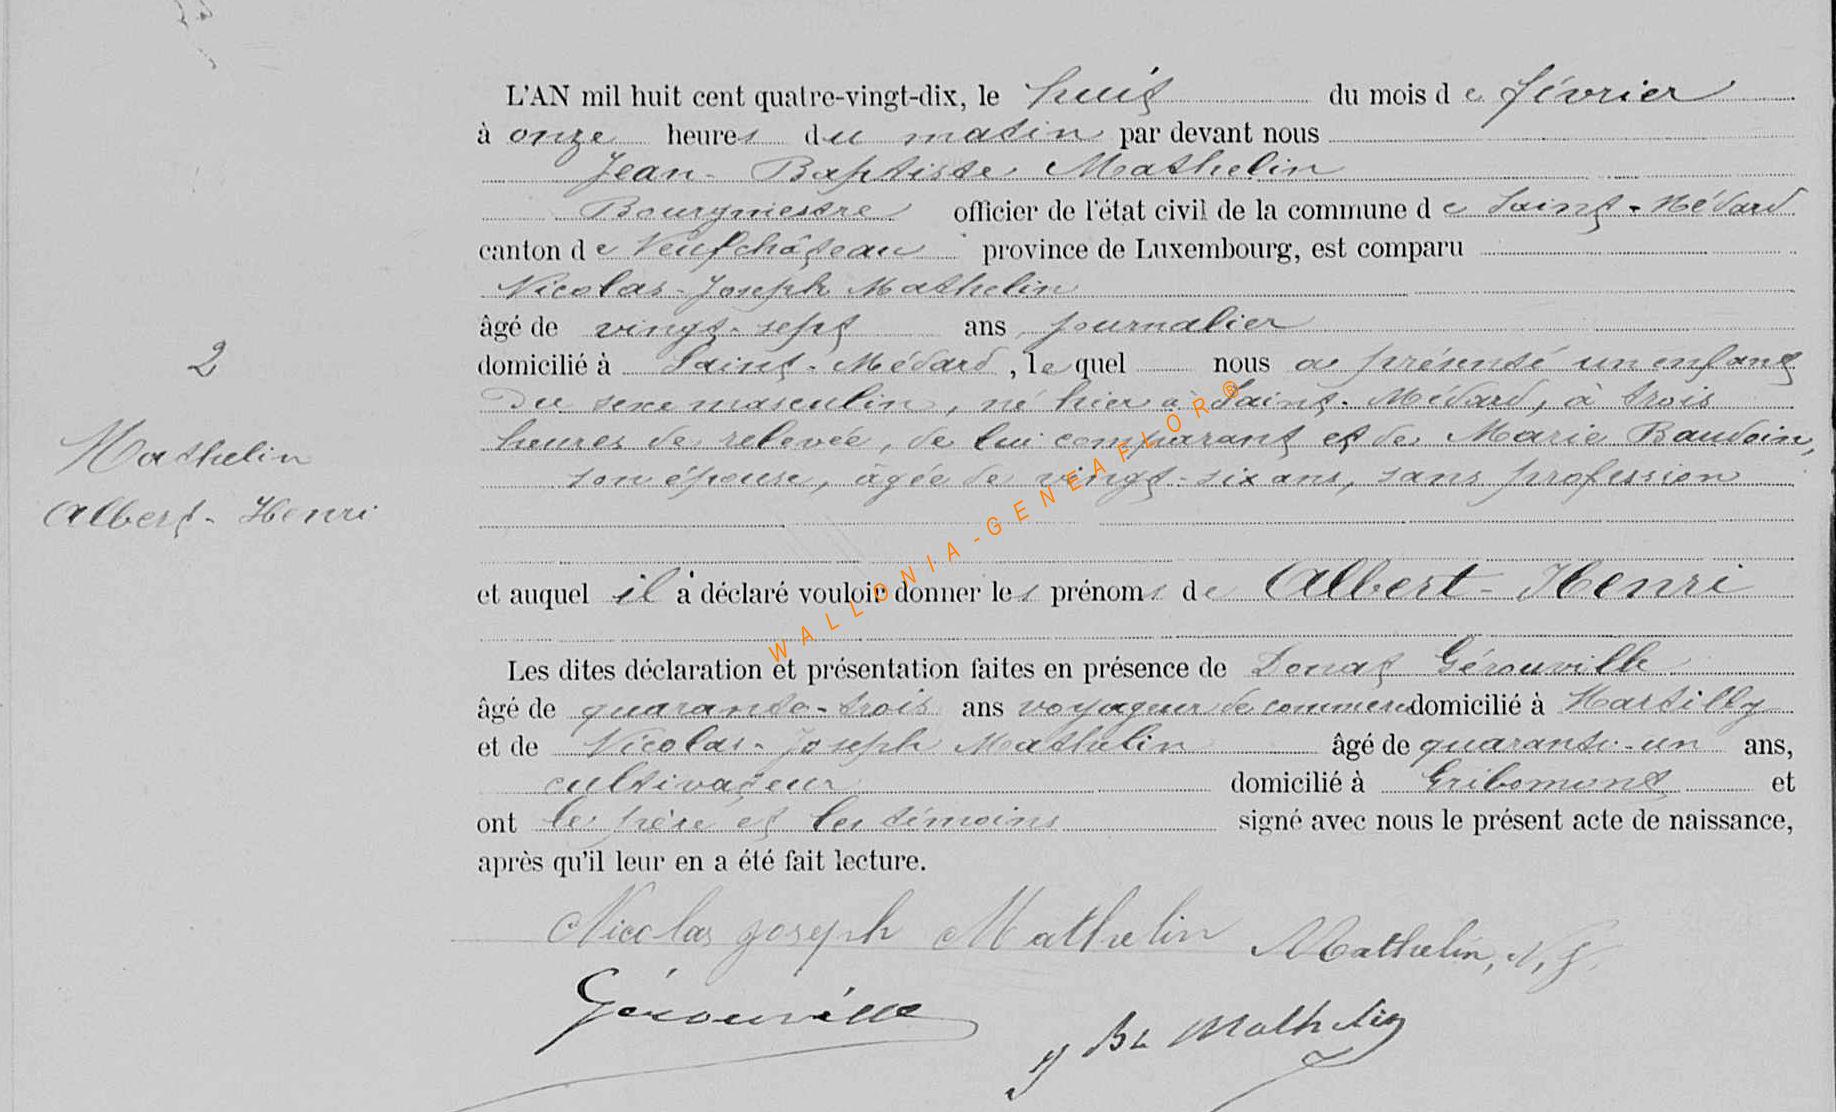 L'AN mil huit cent quatre-vingt-dix, le huit du mois de février
à onze heures du matin par devant nous
Jean-Baptiste Mathelin
Bourgmestre officier de l'état civil de la commune de Saint-Médard
canton de Neufchâteau province de Luxembourg, est comparu
Nicolas-Joseph Mathelin
âgé de vingt-sept ans journalier
domicilié à Saint-Médard, lequel nous a présenté un enfant
du sexe masculin, né hier à Saint-Médard, à trois
heures de relevée, de lui comparant et de Marie Baudoin,
son épouse, âgée de vingt-six ans, sans profession
2
Mathelin
Albert-Henri
et auquel il a déclaré vouloir donner les prénoms de Albert-Henri
Les dites déclaration et présentation faites en présence de Donat Gérouville
âgé de quarante-trois ans voyageur de commerce domicilié à Martilly
et de Nicolas-Joseph Mathelin âgé de quarante-un ans,
cultivateur domicilié à Gribomont et
ont le père et les témoins signé avec nous le présent acte de naissance,
après qu'il leur en a été fait lecture.
Nicolas Joseph Mathelin Mathelin, N, J.
Gérouville
J Bte Mathelin
WALLONIA-GENEAFLOR®